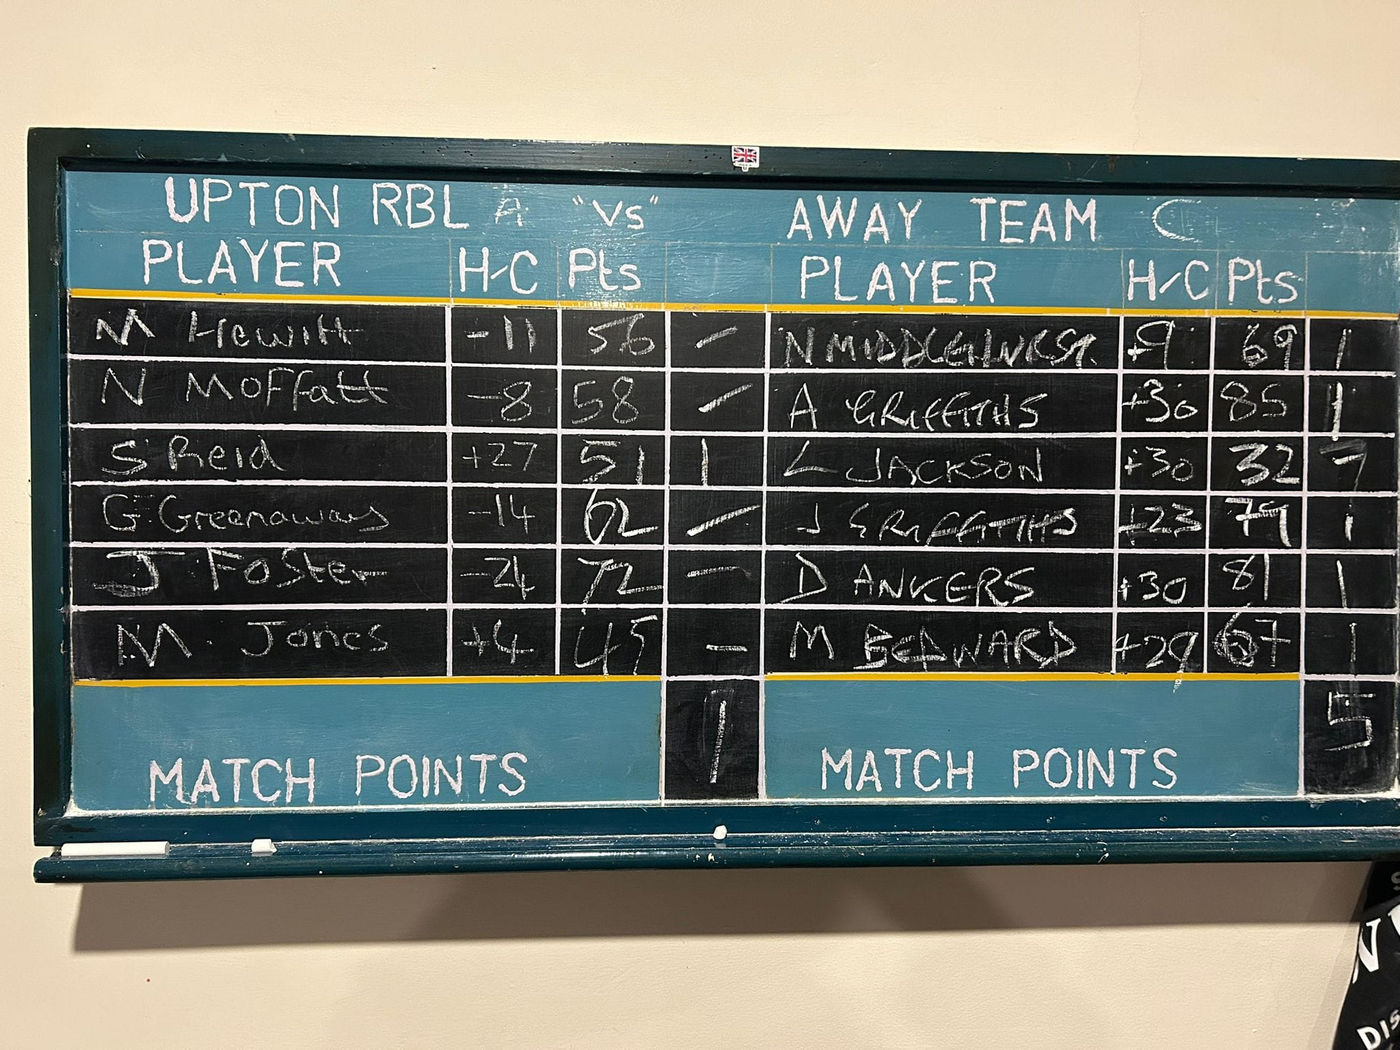 UPTON RBL A "VS" AWAY TEAM C
PLAYER H-C Pts PLAYER H-C Pts
M Hewitt -11 56 - N MIDDLEHURST. +9 69 1
N Moffatt -8 58 - A GRIFFITHS +30 85 1
S Reid +27 51 1 L JACKSON +30 32
G Greenaway -14 62 - J GRIFFITHS +23 79 1
J Foster -24 72 - D ANKERS +30 81 1
M. Jones +4 45 - M BEDWARD +29 67 1
MATCH POINTS 1 MATCH POINTS 5